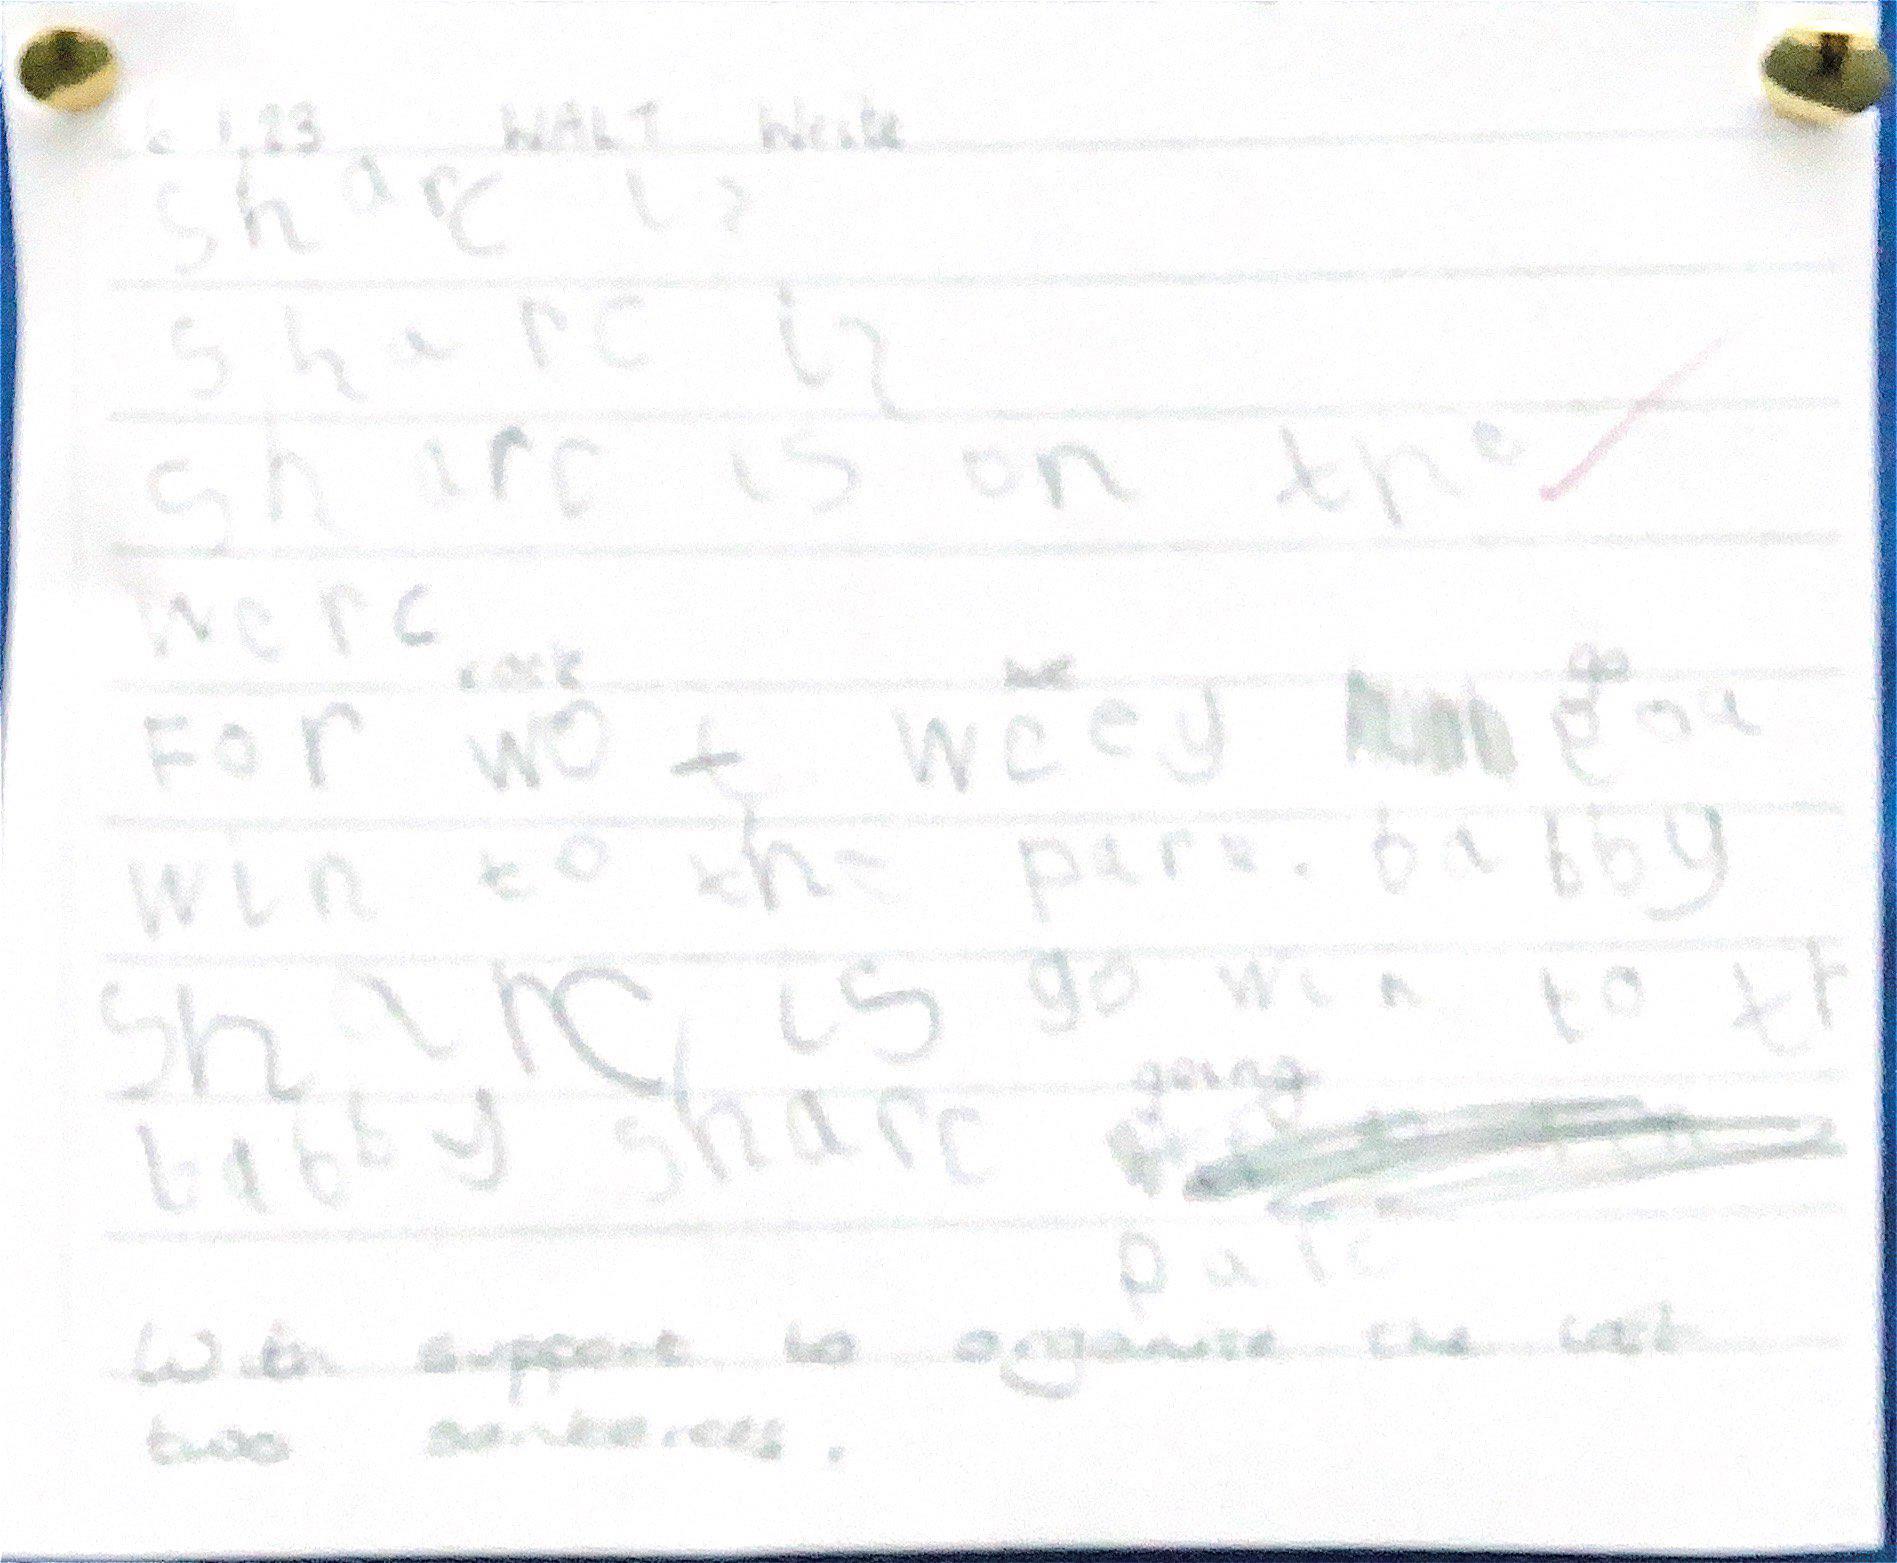 6.1.23 WALT Write
Sharc is
Sharc is
Sharc is on the
werc
rock we go
For wo t weey goa
win to the parc. babby
Sharc is go win to th
going
babby sharc
parc
With support to organise the last
two sentences.